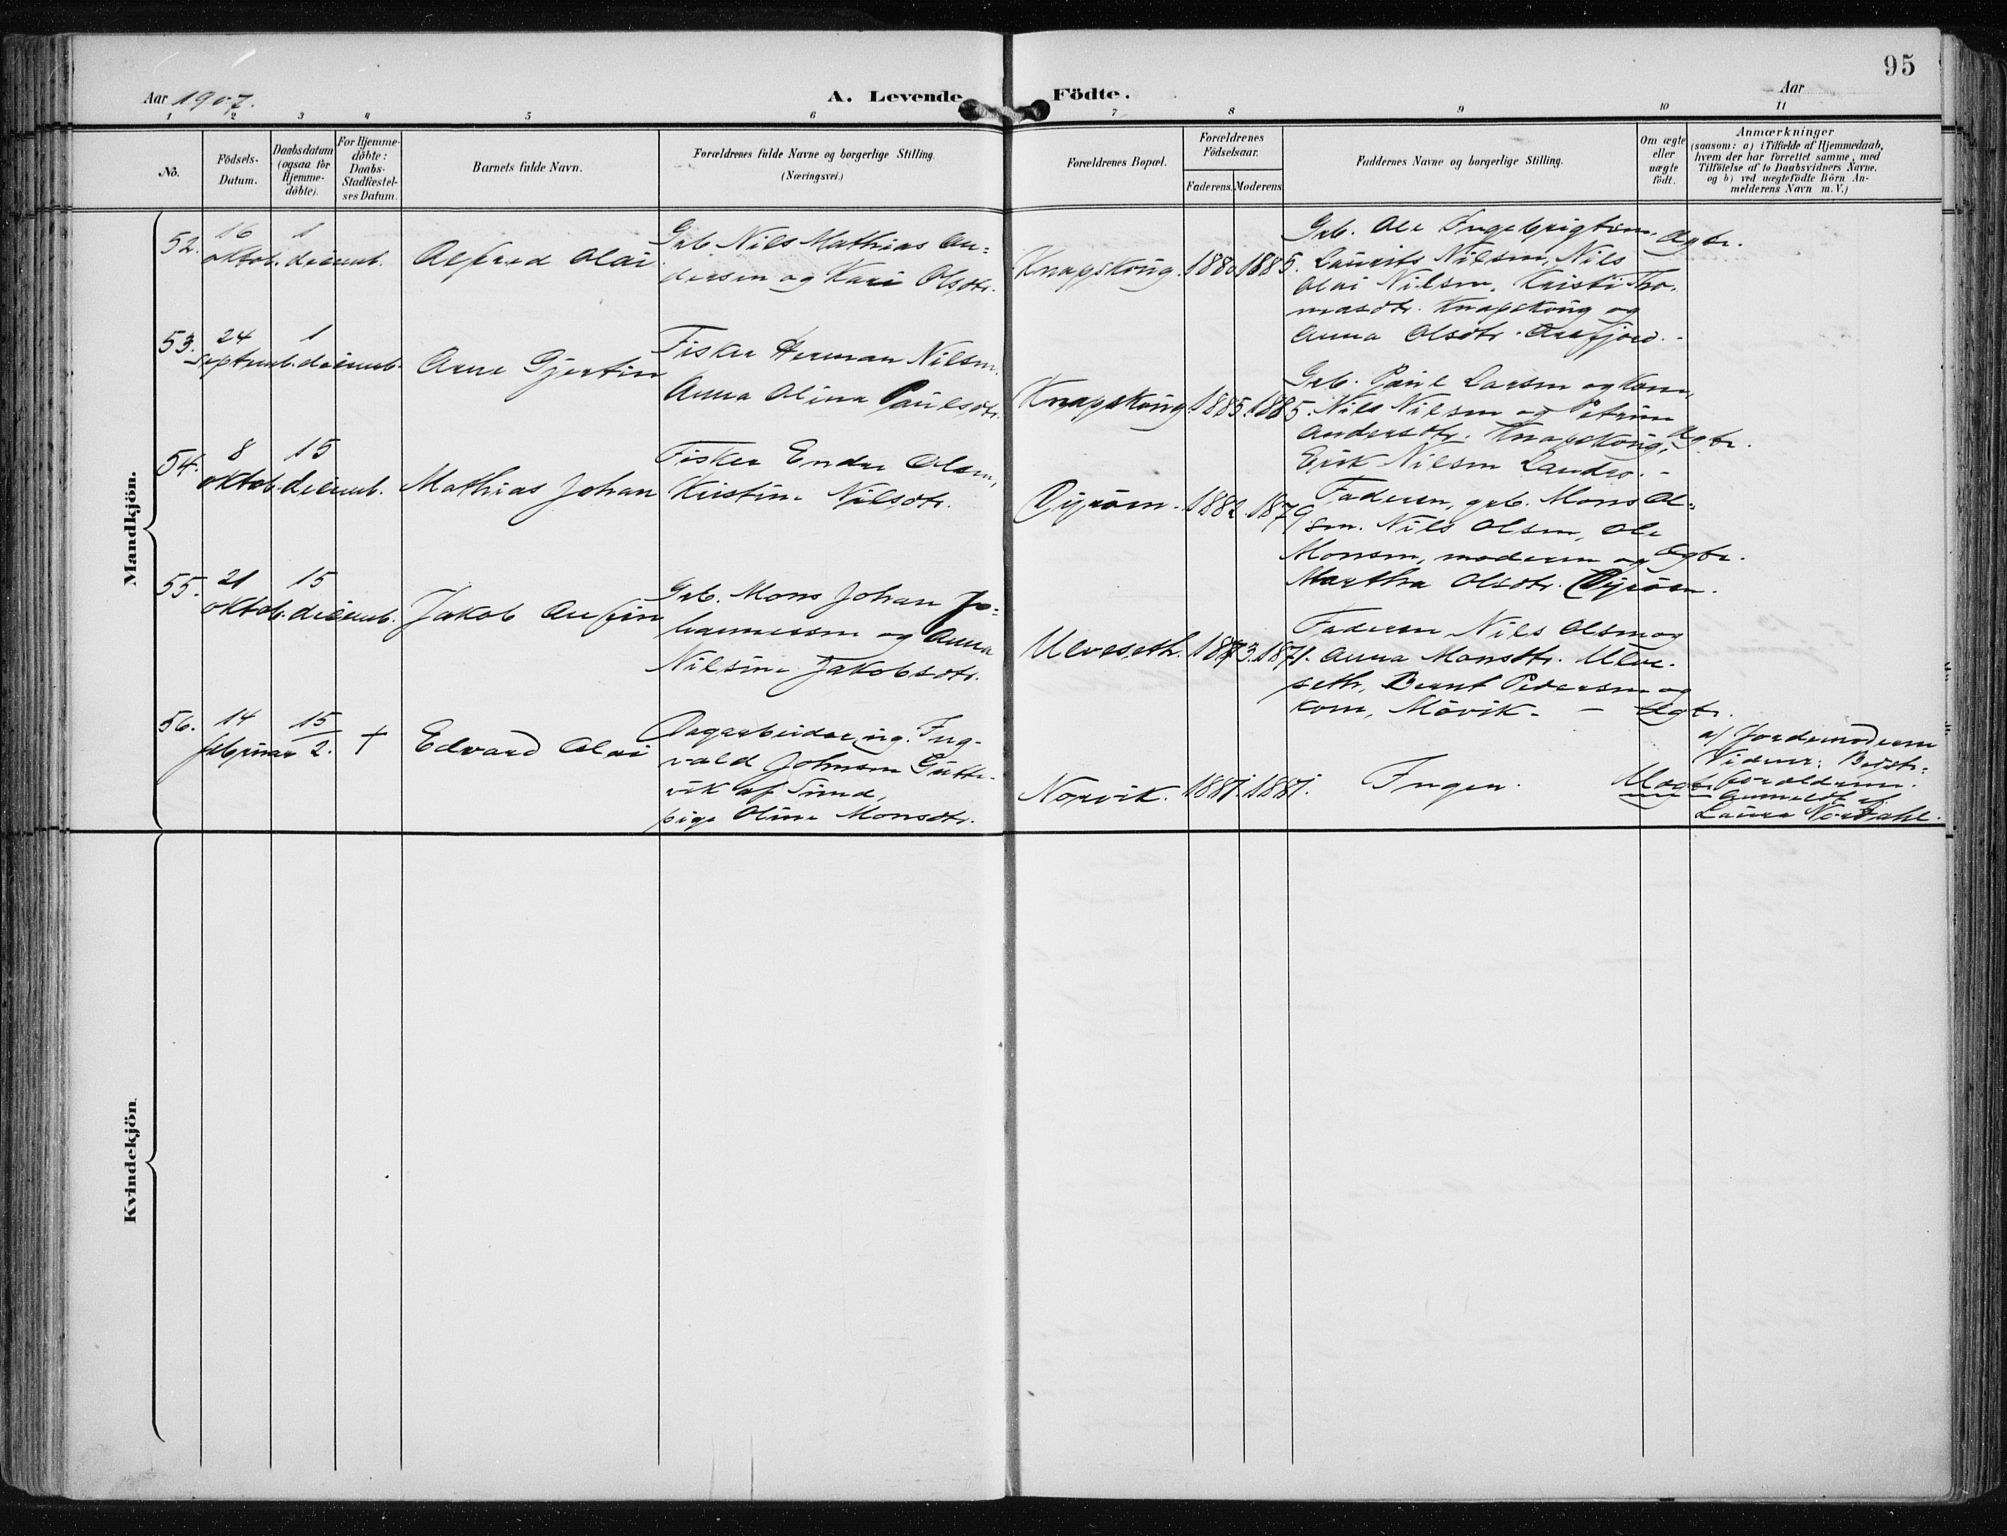 95
Aar 1907.
A. Levende Födte.
Aar
1 2 3 4 5 6 7 8 9 10 11
No.
Födsels-
Datum.
Daabsdatum
(ogsaa for
Hjemme-
döbte).
For Hjemme-
döbte:
Daabs-
Stadfæstel-
ses Datum.
Barnets fulde Navn.
Forældrenes fulde Navne og borgerlige Stilling.
(Næringsvei.)
Forældrenes Bopæl.
Forældrenes
Födselsaar.
Faderens.
Moderens
Faddernes Navne og borgerlige Stilling.
Om ægte
eller
uægte
födt.
Anmærkninger
(saasom: a) i Tilfælde af Hjemmedaab,
hvem der har forrettet samme, med
Tilföielse af to Daabsvidners Navne,
og b) ved uægtefödte Börn An-
melderens Navn m. V.)
Mandkjön.
52.
16
oktob.
1
decemb.
Alfred Olai
Grb. Nils Mathias An-
dersen og Kari Olsdtr.
Knapskoug.
1880
1885.
Grb. Ole Ingebrigtsen,
Laurits Nilsen, Nils
Olai Nilsen, Kristi Tho-
masdtr. Knapskoug og
Anna Olsdtr.
Ægte.
53.
24
septemb.
1
decemb.
Arne Gjertin
Fisker Herman Nilsen.
Anna Olina Paulsdtr.
Knapskoug
1885.
1885.
Grb. Paul Larsen og Kone,
Nils Nilsen og
Andersdtr. Knapskoug,
Erik Nilsen Landro.
Ægte.
54.
8
oktob.
15
decemb.
Mathias Johan
Fisker Endre Olsen,
Kristine Nilsdtr.
Dyröen.
1882
1879
Faderen, grb. Mons Ol-
sen. Nils Olsen, Ole
Monsen, moderen og
Martha Olsdtr. Dyröen.
Ægte.
55.
21
oktob.
15
decemb.
Jakob Arfin
Grb. Mons Johan Jo-
hannessen og Anna
Nilsine Jakobsdtr.
Ulveseth.
1873.
1871.
Faderen Nils Olsen og
Anna Monsdtr. Ulve-
seth, Bernt Pedersen og
Kone, Mövik.
Ægte.
56.
14
februar
15
2.
+
Edvard Olai
Dagarbeider, ug. Ing-
vald Johnsen Gutte-
vik af Sund,
pige Oline Monsdtr.
Norvik.
1887.
1887.
Ingen.
Uægte
af Jordemoderen
Vidner: Bedste-
forældrene.
Anmeldt af
Laura Nordahl.
Kvindekjön.